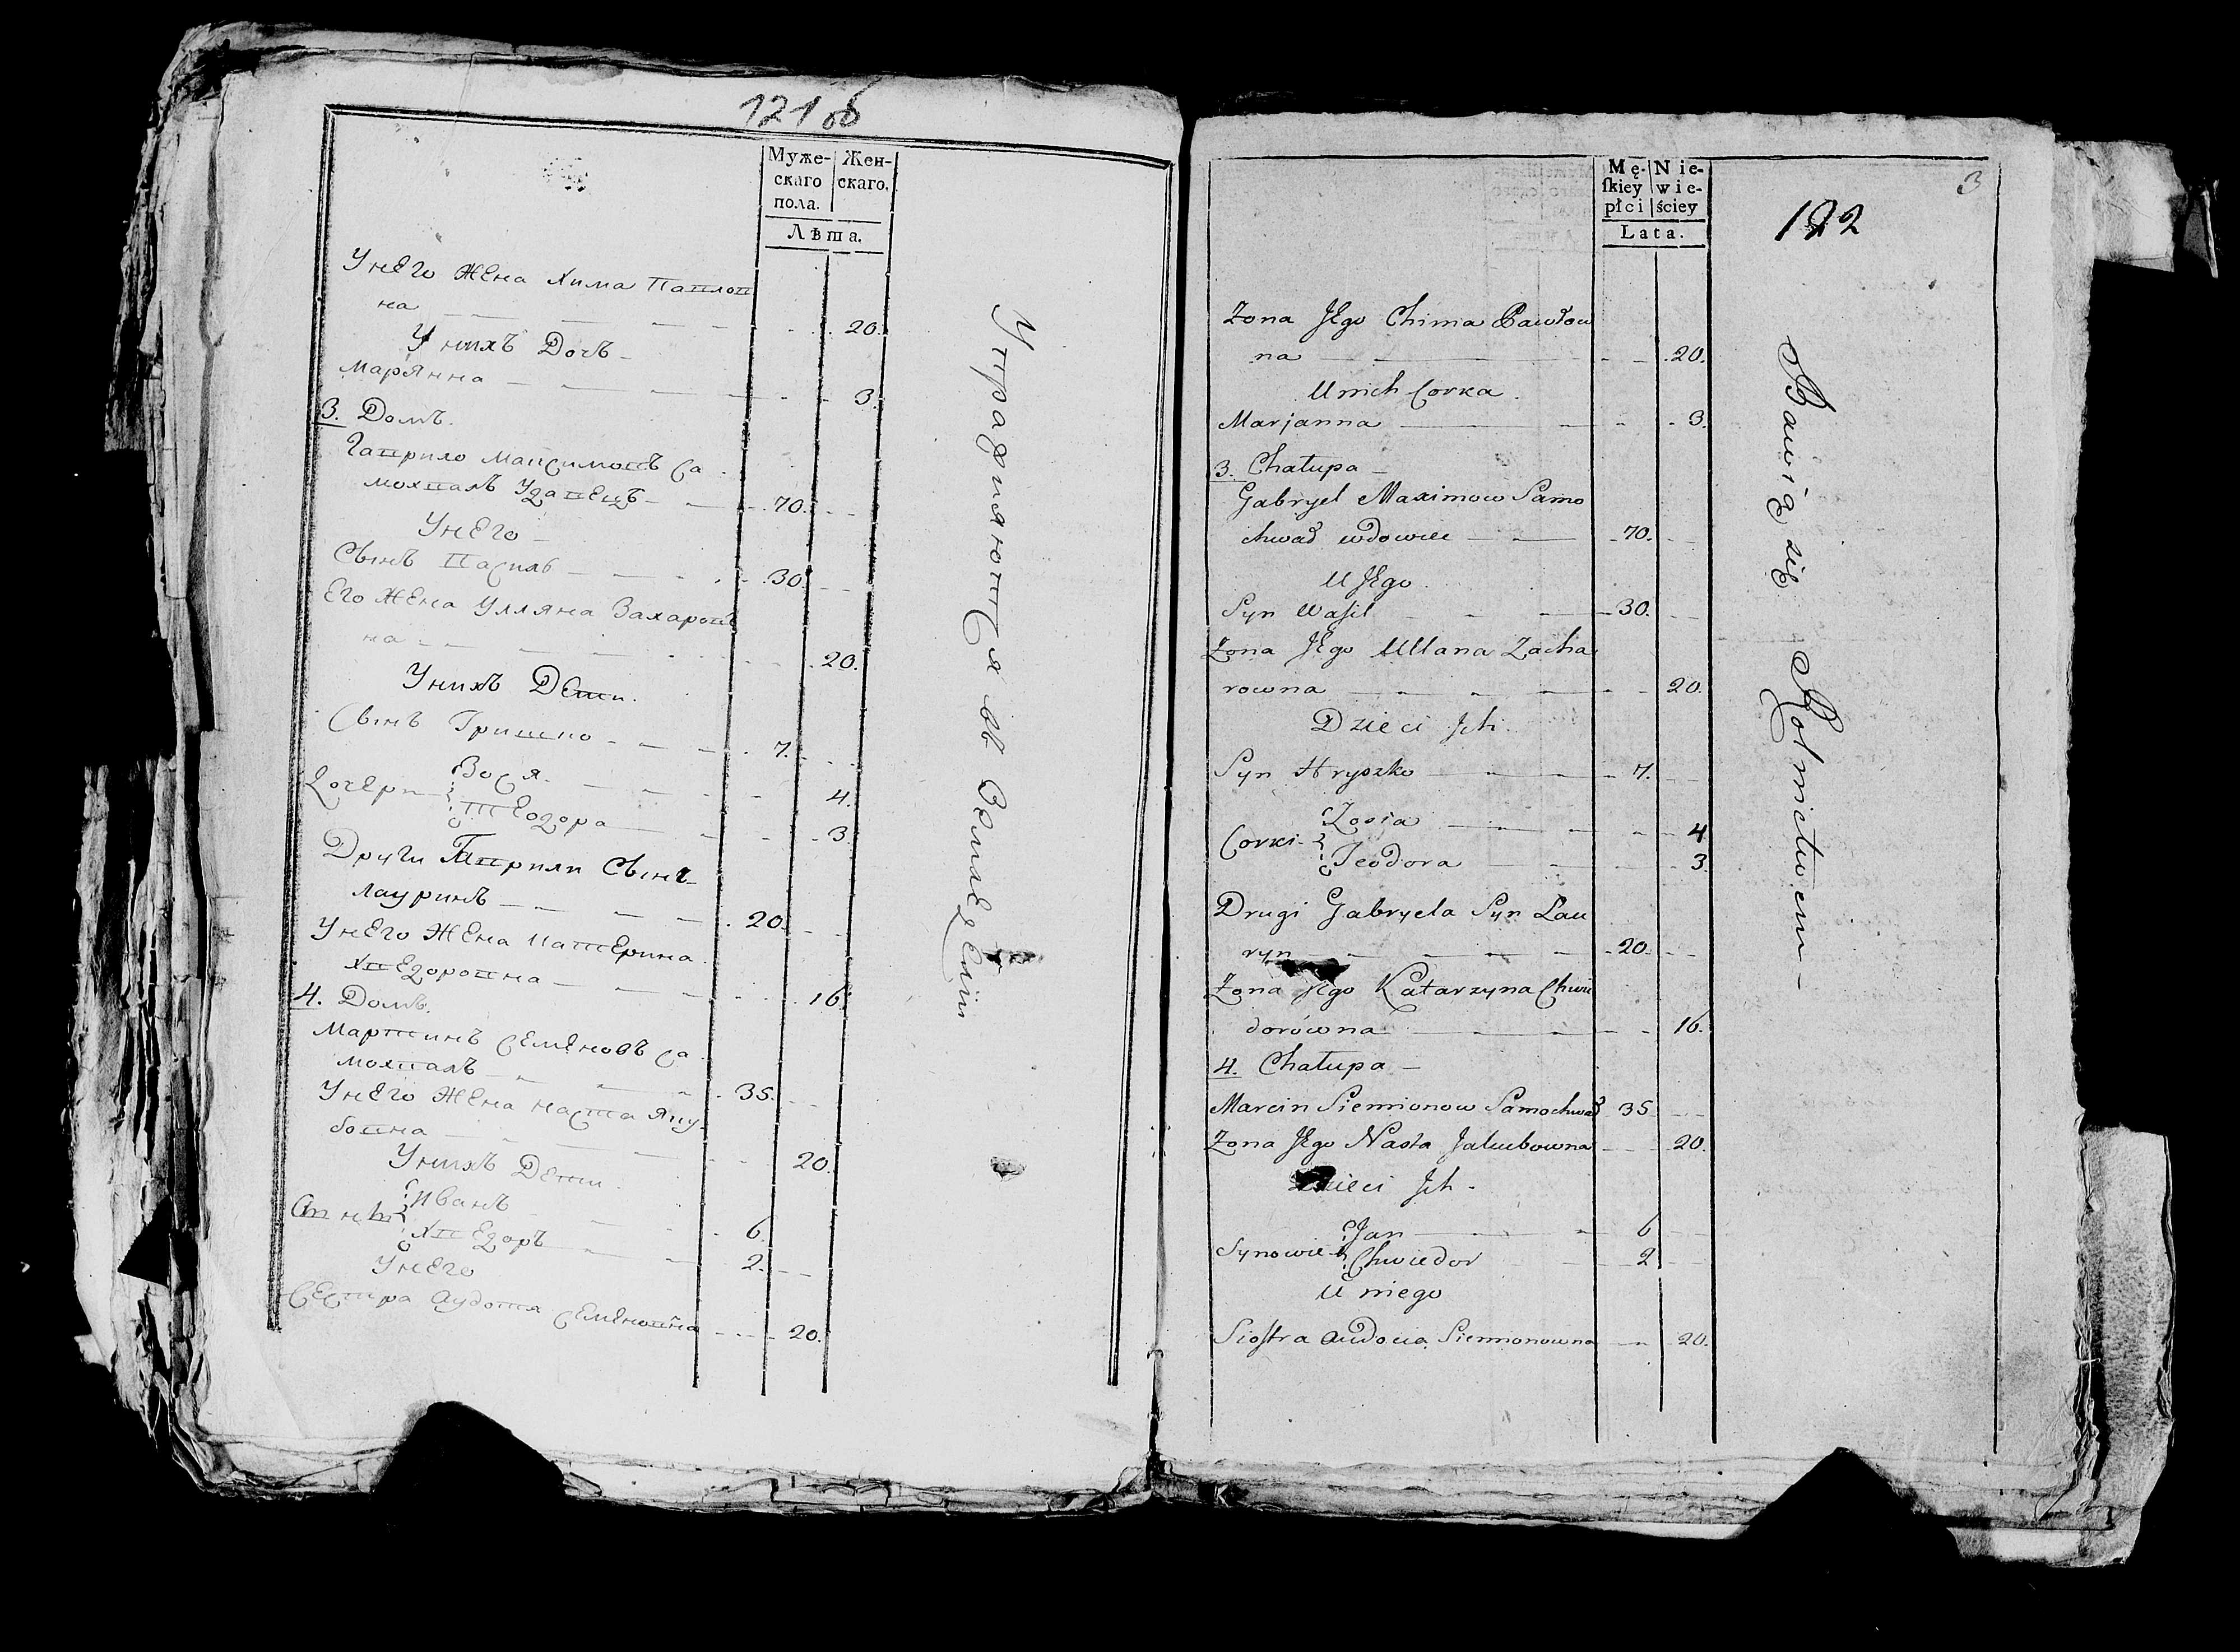 121 об
Муже- Жен-
скаго скаго.
пола.
Лѣта.
Унего жена Хима Павлов
на 20.
Унихъ Дочь
Марянна 3.
3. Домъ.
Гаврило Максимовъ Са
мохвалъ удовецъ 70.
Унего
Сынъ Василь 30.
Его жена Улляна Захаров
на 20.
Унихъ Дети.
Сынъ Гришко 7.
Дочери Зося 4.
Теодора 3.
Други Гаврили Сынъ
Лауринъ 20.
Унего жена Катерина
Хведоровна 16.
4. Домъ.
Мартинъ Семеновъ Са
мохвалъ 35.
Унего жена наста Яку
бовна 20.
Унихъ Дети.
Иванъ 6.
Хведоръ 2.
Унего
Сестра Аудотя Семеновна 20.
Упражняются въ Земледелии
3
122
Mę- Nie-
ſkiey wie-
płci ściey
Lata.
Zona Jego Chima Pawłow
na 20.
Unich Corka
Marjanna 3.
3. Chałupa
Gabryel Maximow Samo
chwał wdowiec 70.
U Jego
Syn Waſil 30.
Zona Jego Ullana Zacha
rowna 20.
Dzieci Jch.
Syn Hryszko 7.
Corki Zosia 4
Teodora 3.
Drugi Gabryela Syn Lau
ryn 20.
Zona Jego Katarzyna Chwie
dorówna 16.
4. Chałupa
Marcin Siemionow Samochwał 35
Zona Jego Nasta Jakubowna 20.
Dzieci Jch.
Synowie Jan 6
Chwiedor 2
U niego
Sioſtra Audocia Siemionowna 20.
Bawią się Rolnictwem